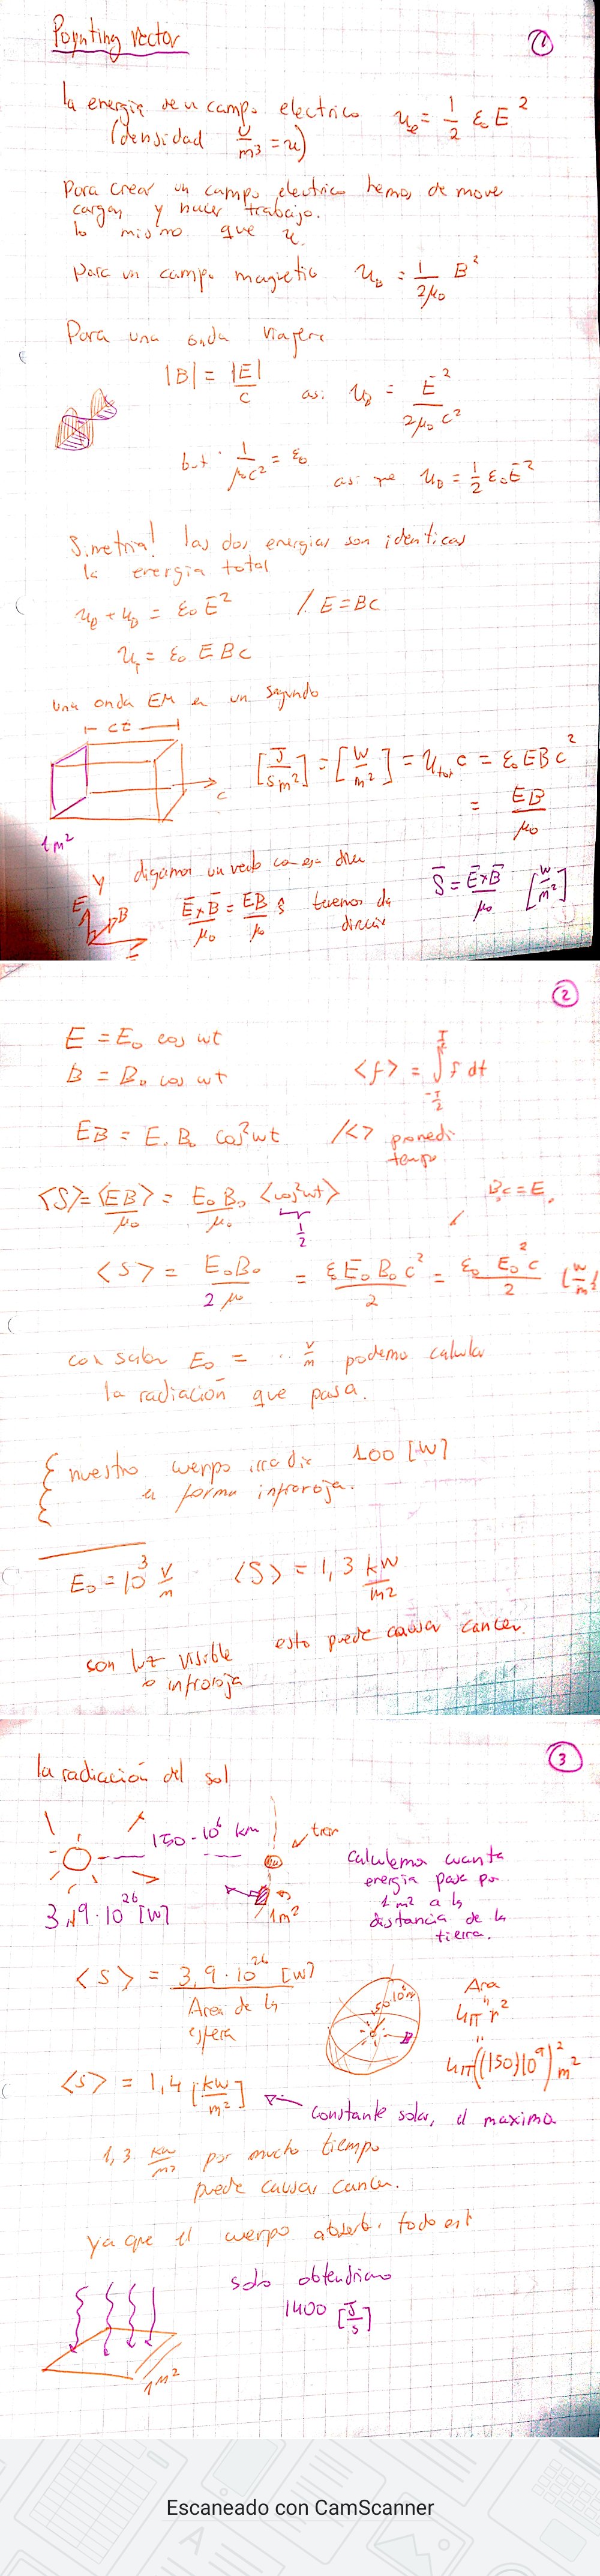 Poynting vector
①
la energia de un campo electrico u_e = 1/2 ε₀ E²
(densidad J/m³ = u)
Para crear un campo electrico hemos de move
cargas y hacer trabajo.
lo mismo que u.
para un campo magnetic u_b = 1/(2μ₀) B²
Para una onda viajera
|B| = |E|/c así u_b = E²/(2μ₀c²)
but 1/(μ₀c²) = ε₀ así que u_b = 1/2 ε₀E²
Simetria! las dos energias son identicas
la energia total
u_e + u_b = ε₀E² /. E = BC
u_T = ε₀ E B c
una onda EM en un segundo
ct
[J/(s m²)] = [W/m²] = u_tot c = ε₀ E B c²
= EB/μ₀
c
1 m²
y digamos un vector con esa direc
E B
E×B/μ₀ = EB/μ₀ ŝ tenemos da
direccion
S = E×B/μ₀ [W/m²]
②
E = E₀ cos wt
B = B₀ cos wt
<f> = ∫ f dt
T/2
-T/2
EB = E₀ B₀ cos² wt /<> promedi
tempo
<S> = <EB>/μ₀ = E₀B₀/μ₀ <cos² wt>
1/2
B₀c = E₀
<S> = E₀B₀/(2μ₀) = ε₀E₀B₀c²/2 = ε₀E₀²c/2 [W/m²]
con saber E₀ = ... V/m podemo calcular
la radiación que pasa.
nuestro cuerpo irradia 100 [W]
en forma infraroja.
E₀ = 10³ V/m <S> = 1,3 kW/m²
son luz visible
o infraroja
esto puede causar cancer.
③
la radiación del sol
150·10⁶ km
1m²
3,9·10²⁶ [W]
calculemo cuanta
energia pasa por
1 m² a la
distancia de la
tierra.
<S> = 3,9·10²⁶ [W]
Area de la
esfera
Area
4π r²
4π((150)10⁹)² m²
<S> = 1,4 [kW/m²] constante solar, el maximo
1,3 kW/m² por mucho tiempo
puede causar cancer.
ya que el cuerpo
solo obtendriamo
1400 [J/s]
1m²
Escaneado con CamScanner